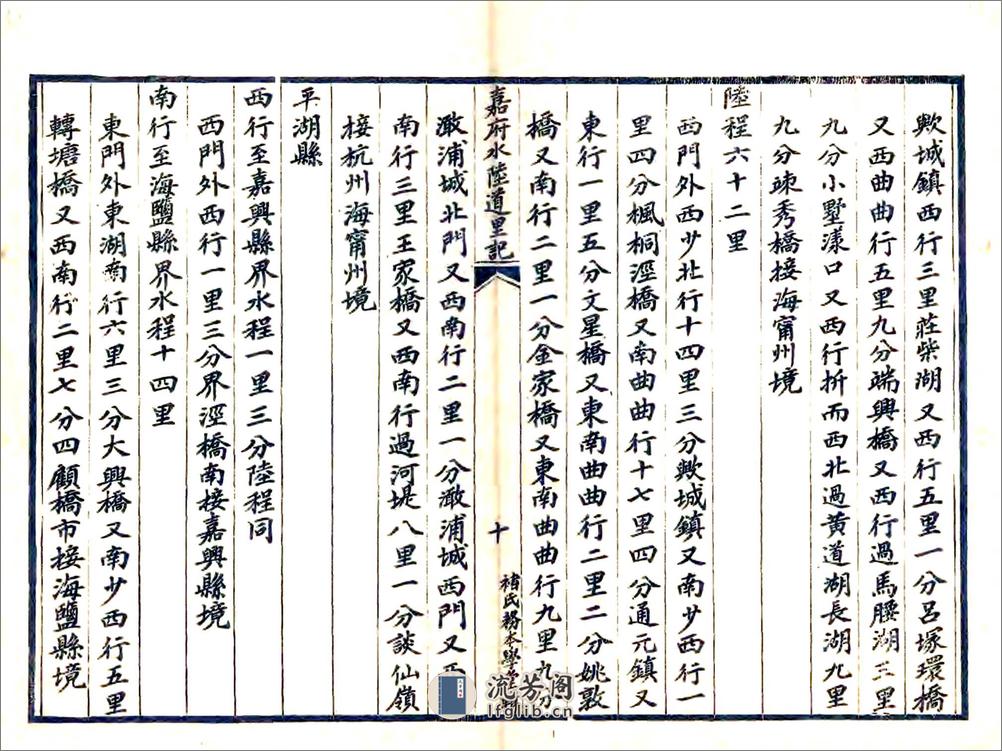 歟城鎮西行三里莊柴湖又西行五里一分呂塚環橋
又西曲曲行五里九分端興橋又西行過馬腰湖三里
九分小墅漾口又西行折而西北過黄道湖長湖九里
九分竦秀橋接海甯州境
陸程六十二里
西門外西少北行十四里三分歟城鎮又南少西行一
里四分楓桐涇橋又南曲曲行十七里四分通元鎮又
東行一里五分文星橋又東南曲曲行二里二分姚敦
橋又南行二里一分金家橋又東南曲曲行九里九分
澉浦城北門又西南行二里一分澉浦城西門又西
嘉府水陸道里記
十
禇氏務本學堂
南行三里王家橋又西南行過河堤八里一分談仙嶺
接杭州海甯州境
平湖縣
西行至嘉興縣界水程一里三分陸程同
西門外西行一里三分界涇橋南接嘉興縣境
南行至海鹽縣界水程十四里
東門外東湖南行六里三分大興橋又南少西行五里
轉塘橋又西南行二里七分四顧橋市接海鹽縣境
流芳阁
lfglib.cn